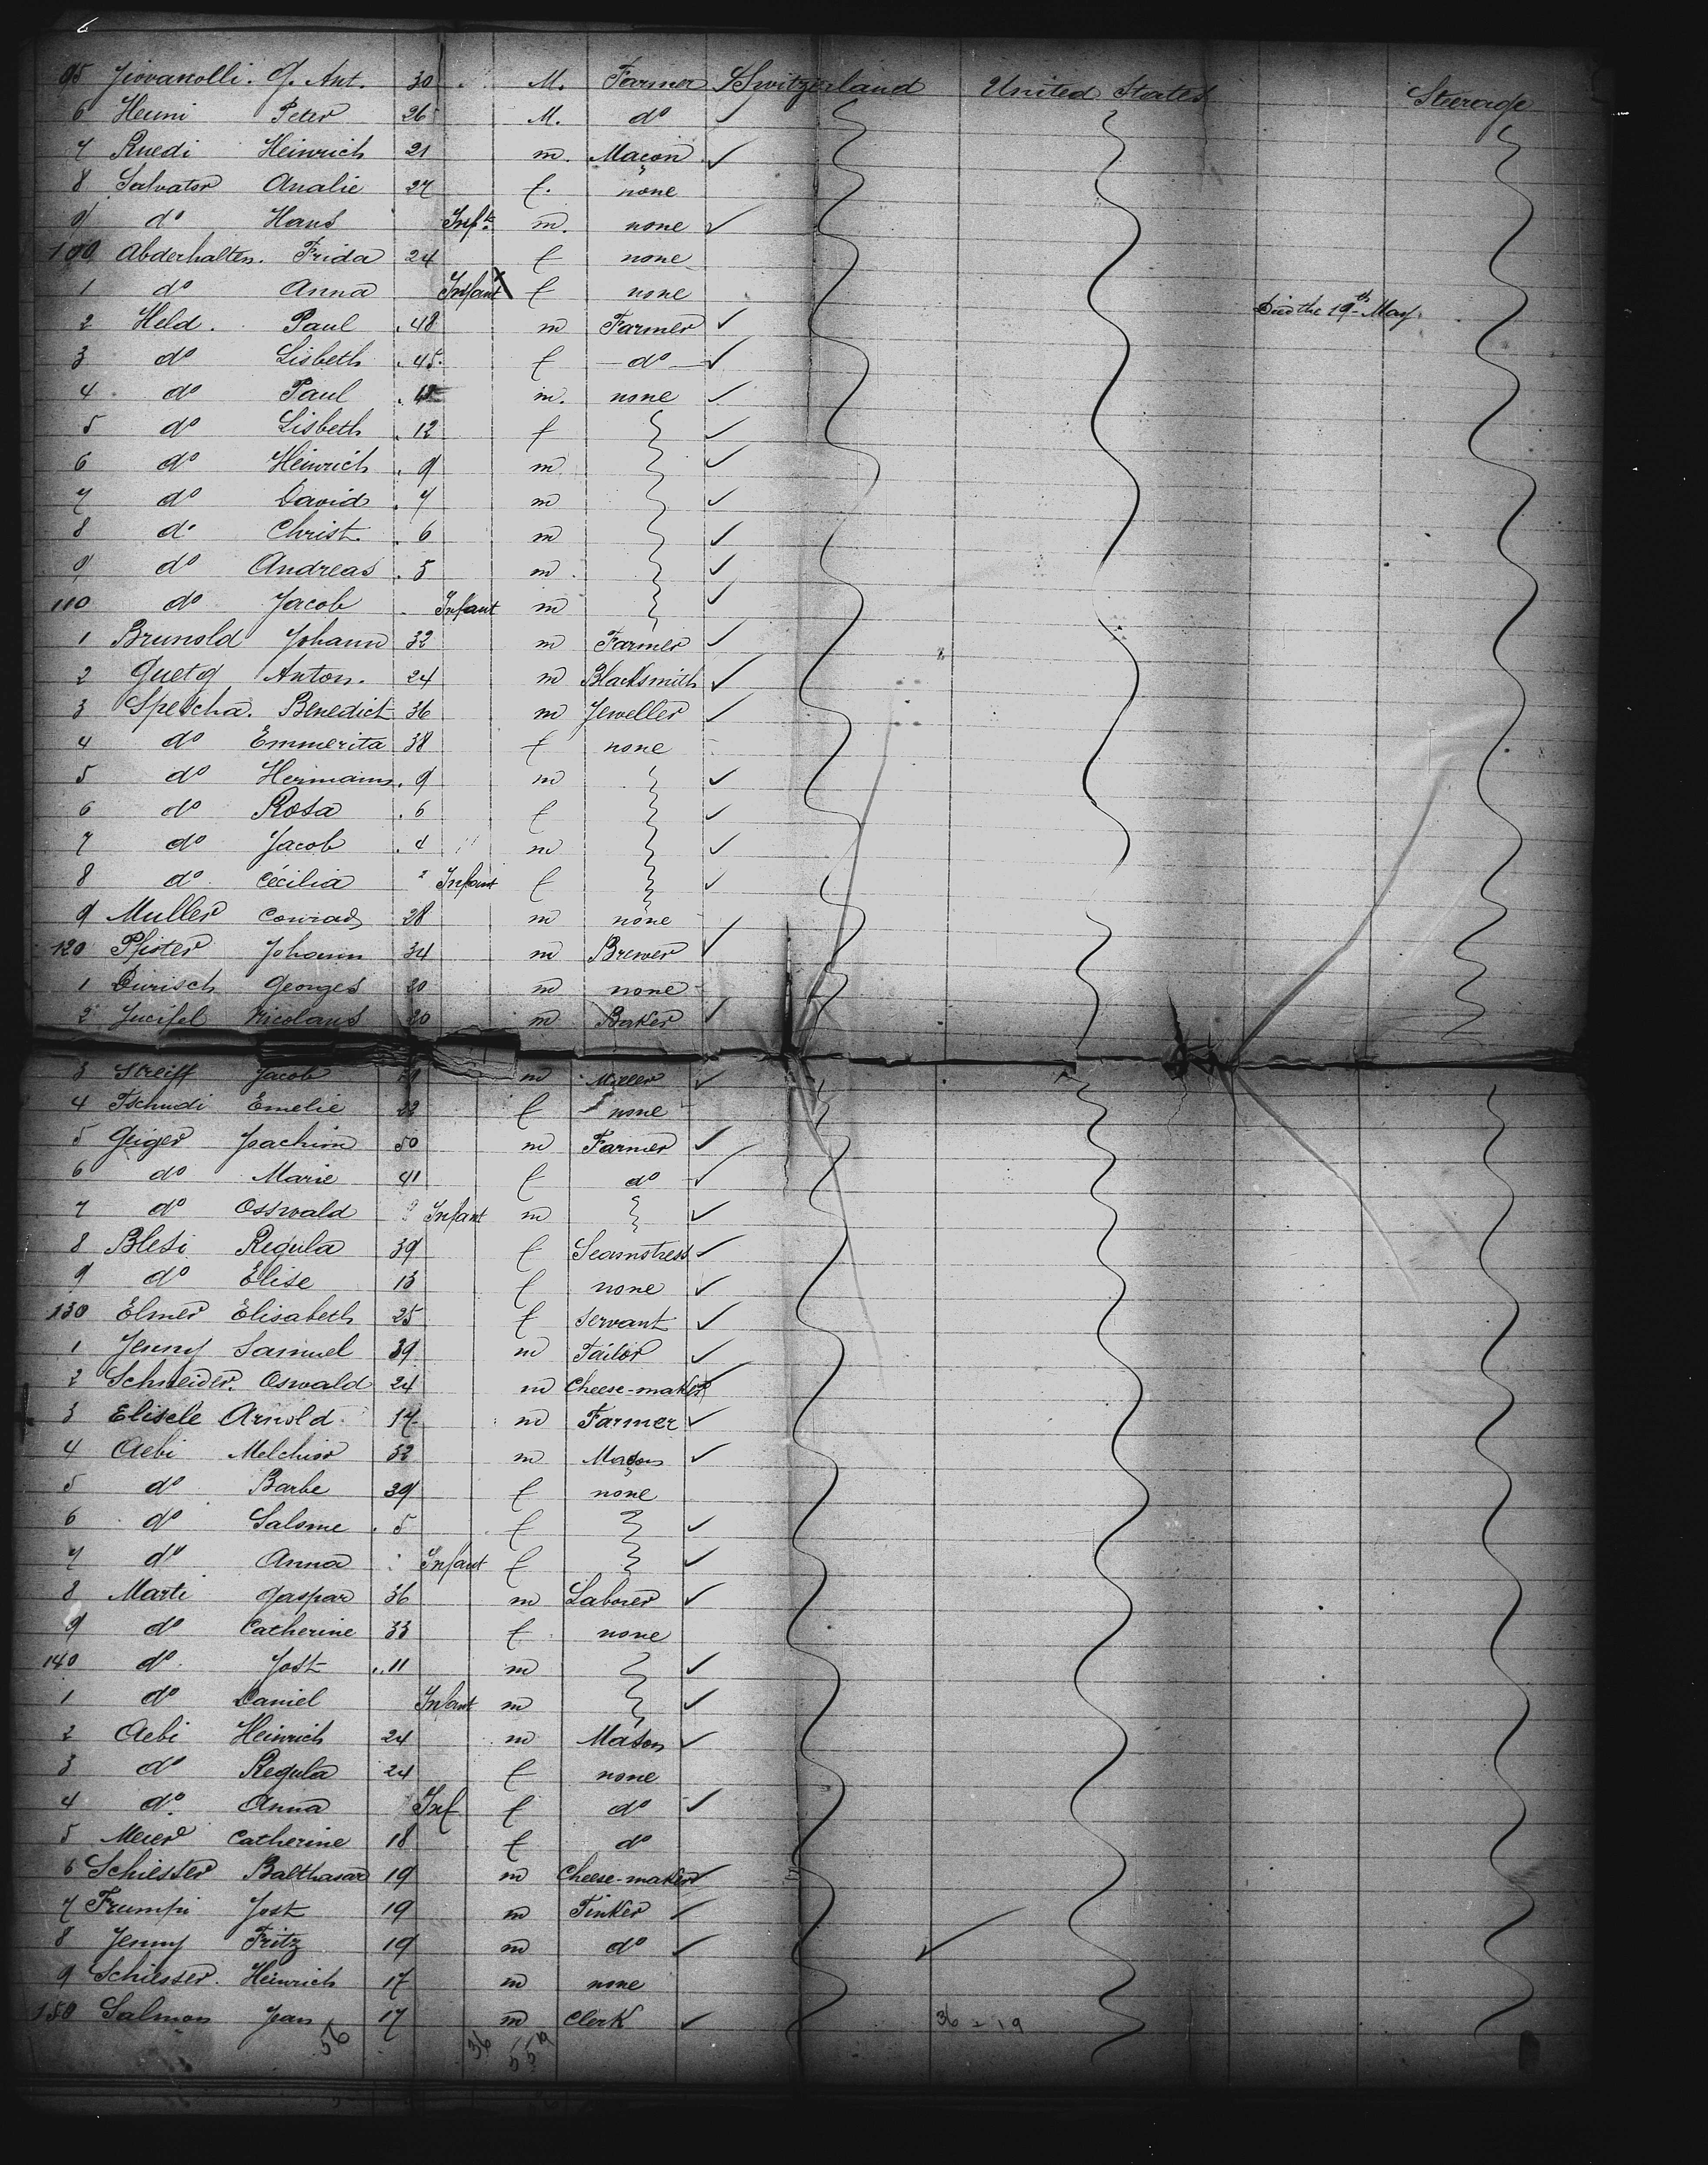 6
95 Jiovanolli. G. Ant. 30 M. Farmer Switzerland United States Steerage
6 Heuni Peter 26 M. do
7 Ruedi Heinrich 21 m. Maçon
8 Salvator Analie 27 f. none
9 do Hans Inft. m. none
100 Abderhalten. Frida 24 f none
1 do Anna Infant f none Died the 19th May.
2 Held. Paul 48 m Farmer
3 do Lisbeth 45 f do
4 do Paul m. none
5 do Lisbeth 12 f
6 do Heinrich 9 m
7 do David 7 m
8 do Christ. 6 m
9 do Andreas 5 m
110 do Jacob Infant m
1 Brunold Johann 32 m Farmer
2 Guetg Anton. 24 m Blacksmith
3 Spescha. Benedict 36 m Jeweller
4 do Emmerita 38 f none
5 do Hermann 9 m
6 do Rosa 6 f
7 do Jacob 4 m
8 do Cécilia Infant f
9 Muller Conrad 28 m none
120 Pfister Johann 34 m Brewer
1 Durisch Georges 20 m none
2 Nicolaus 20 m Baker
3 Streiff Jacob m Miller
4 Tschudi Emelie 22 f none
5 Geiger Joachim 50 m Farmer
6 do Marie 41 f do
7 do Osswald Infant m
8 Blesi Regula 39 f Seamstress
9 do Elise 13 f none
130 Elmer Elisabeth 25 f Servant
1 Jenny Samuel 39 m Tailor
2 Schneider. Oswald 24 m Cheese-maker
3 Elisele Arnold 17 m Farmer
4 Aebi Melchior 32 m Maçon
5 do Barbe 39 f none
6 do Salome 5 f
7 do Anna Infant f
8 Marti Gaspar 36 m Laborer
9 do Catherine 33 f none
140 do Jost 11 m
1 do Daniel Infant m
2 Aebi Heinrich 24 m Mason
3 do Regula 24 f none
4 do Anna Inf f do
5 Meier Catherine 18 f do
6 Schiesser Balthasar 19 m Cheese-maker
7 Trumpi Jost 19 m Tinker
8 Jenny Fritz 19 m do
9 Schiesser. Heinrich 17 m none
150 Salmon Jean 17 m Clerk 36 = 19
56 36 55 19